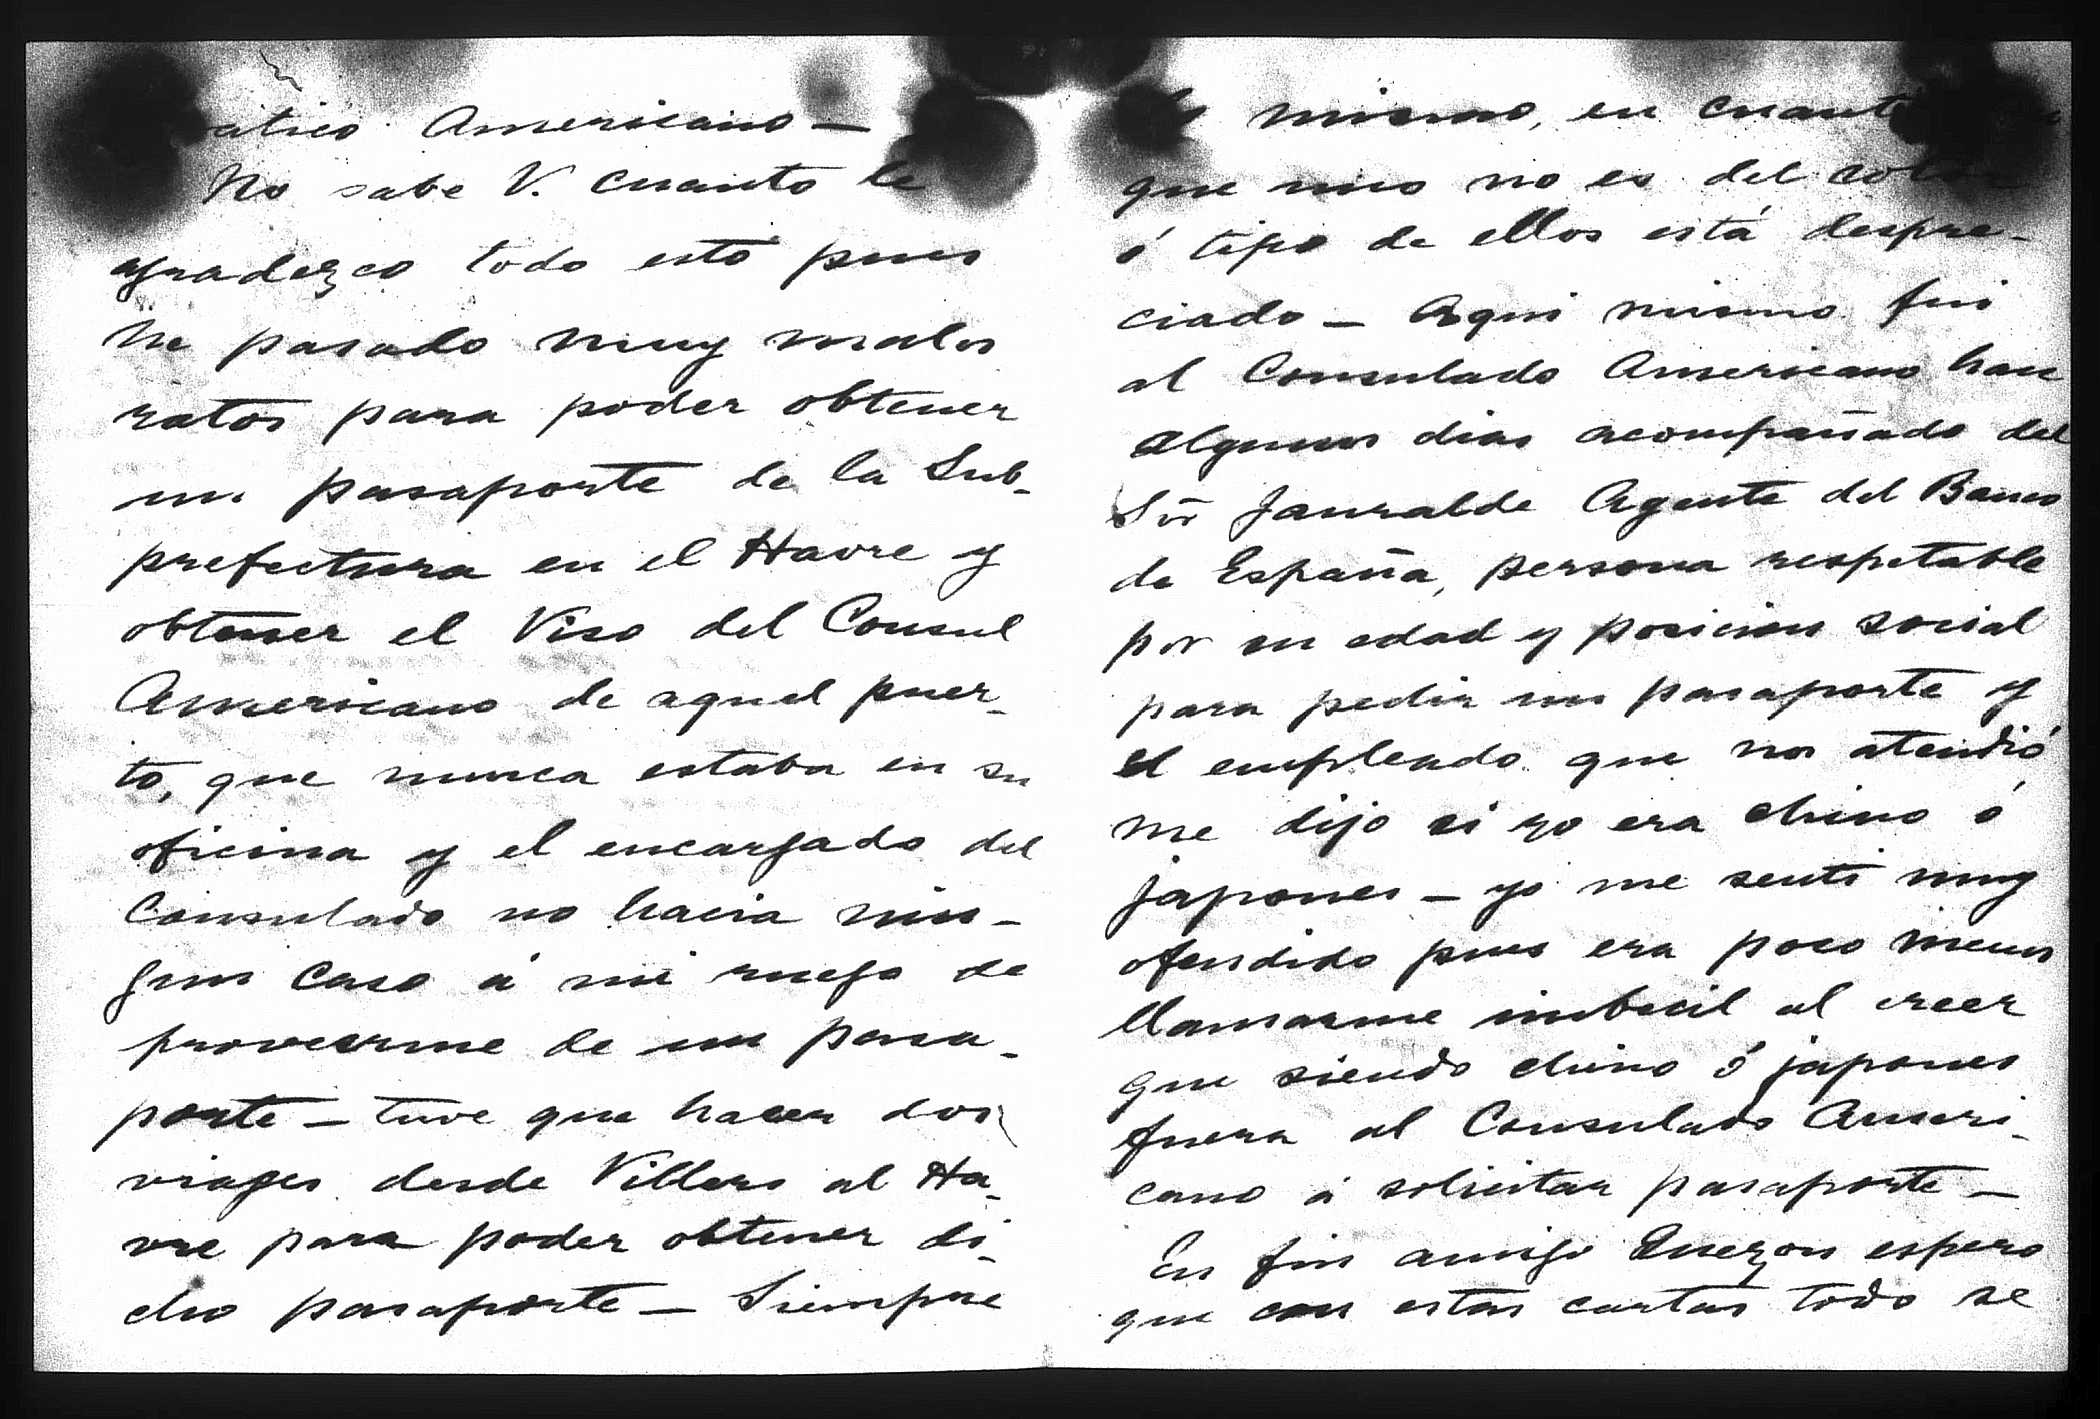 ático Americano —
No sabe V. cuanto le
agradezco todo esto pues
he pasado muy malos
ratos para poder obtener
un pasaporte de la Sub-
prefectura en el Havre y
obtener el Viso del Consul
Americano de aquel puer-
to, que nunca estaba en su
oficina y el encargado del
Consulado no hacia nin-
gun caso á mi ruego de
proveerme de un pasa-
porte — tuve que hacer dos
viages desde Villers al Ha-
vre para poder obtener di-
cho pasaporte — Siempre
lo mismo, en cuanto
que uno no es del color
ó tipo de ellos está despre-
ciado — Aqui mismo fui
al Consulado Americano hace
algunos dias acompañado del
Sör Jauralde Agente del Banco
de España, persona respetable
por su edad y posicion social
para pedir un pasaporte y
el empleado que nos atendió
me dijo si yo era chino ó
japones — yo me senti muy
ofendido pues era poco menos
llamarme imbecil al creer
que siendo chino ó japones
fuera al Consulado Ameri-
cano á solicitar pasaporte —
En fin amigo Quezon espero
que con estas cartas todo se